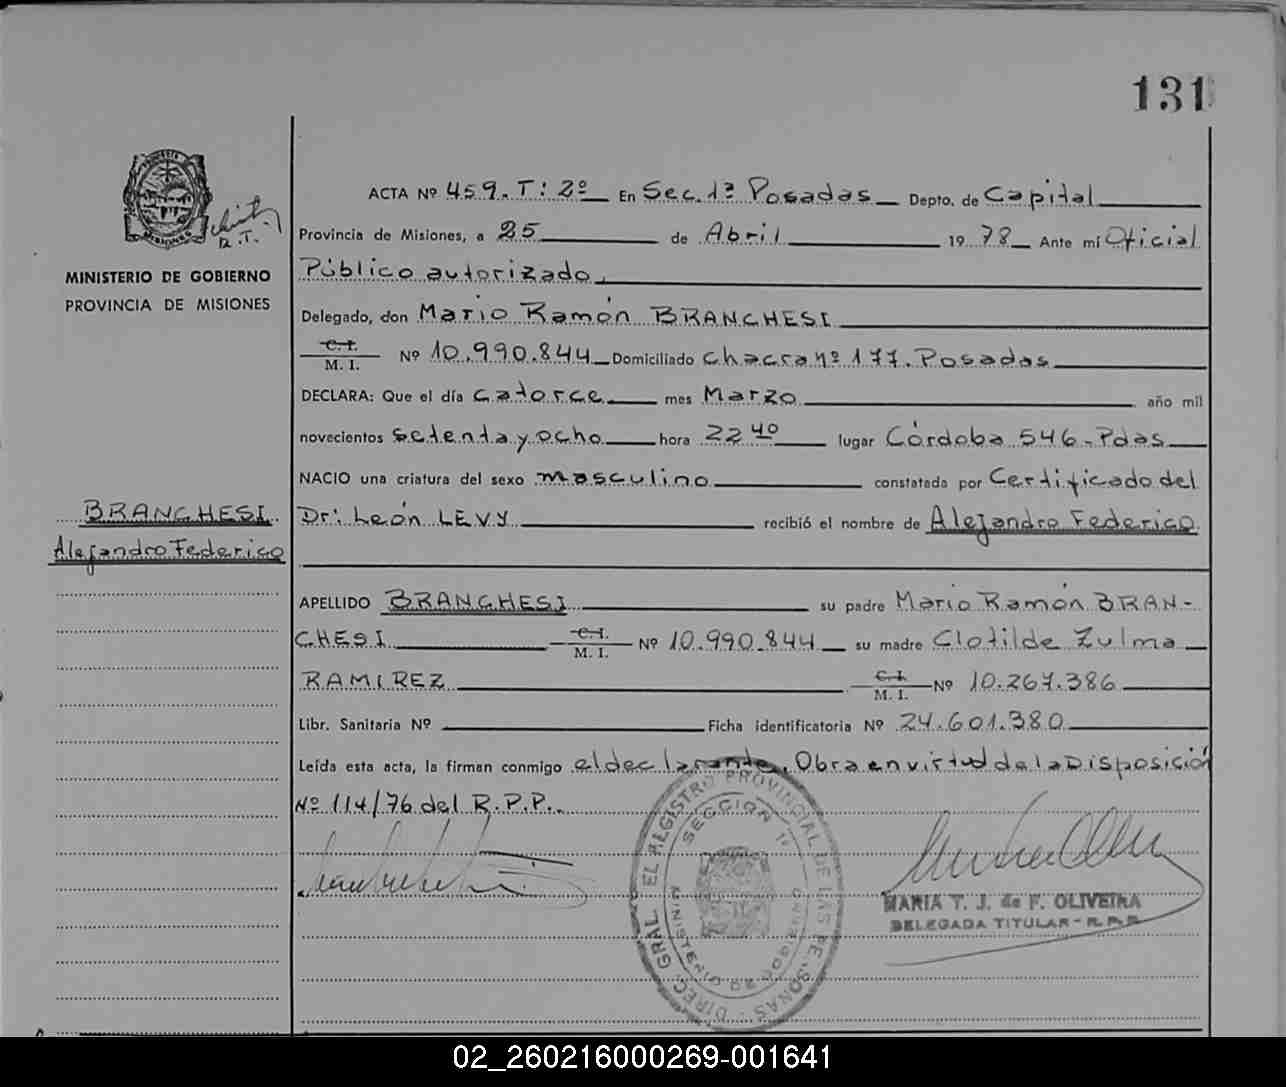 131
MISIONES
R.T.
MINISTERIO DE GOBIERNO
PROVINCIA DE MISIONES
BRANCHESI
Alejandro Federico
ACTA Nº 459. T: 2º En Sec. 1ª Posadas Depto. de Capital
Provincia de Misiones, a 25 de Abril 19 78 Ante mí Oficial
Público autorizado,
Delegado, don Mario Ramón BRANCHESI
C. I.
M. I. Nº 10.990.844 Domiciliado Chacra nº 177. Posadas
DECLARA: Que el día catorce mes Marzo año mil
novecientos setenta y ocho hora 22 40 lugar Córdoba 546-Pdas
NACIO una criatura del sexo masculino constatada por Certificado del
Dr: León LEVY recibió el nombre de Alejandro Federico
APELLIDO BRANCHESI su padre Mario Ramón BRAN-
CHESI C. I. M. I. Nº 10.990.844 su madre Clotilde Zulma
RAMIREZ C. I. M. I. Nº 10.267.386
Libr. Sanitaria Nº Ficha identificatoria Nº 24.601.380
Leída esta acta, la firman conmigo el declarante. Obra en virtud de la Disposición
Nº 114/76 del R.P.P.
DIREC. GRAL. EL REGISTRO PROVINCIAL DE LAS PERSONAS
SECCION 1ª
MINISTERIO DE GOBIERNO
MARIA T. J. de F. OLIVEIRA
DELEGADA TITULAR - R.P.P.
02_260216000269-001641